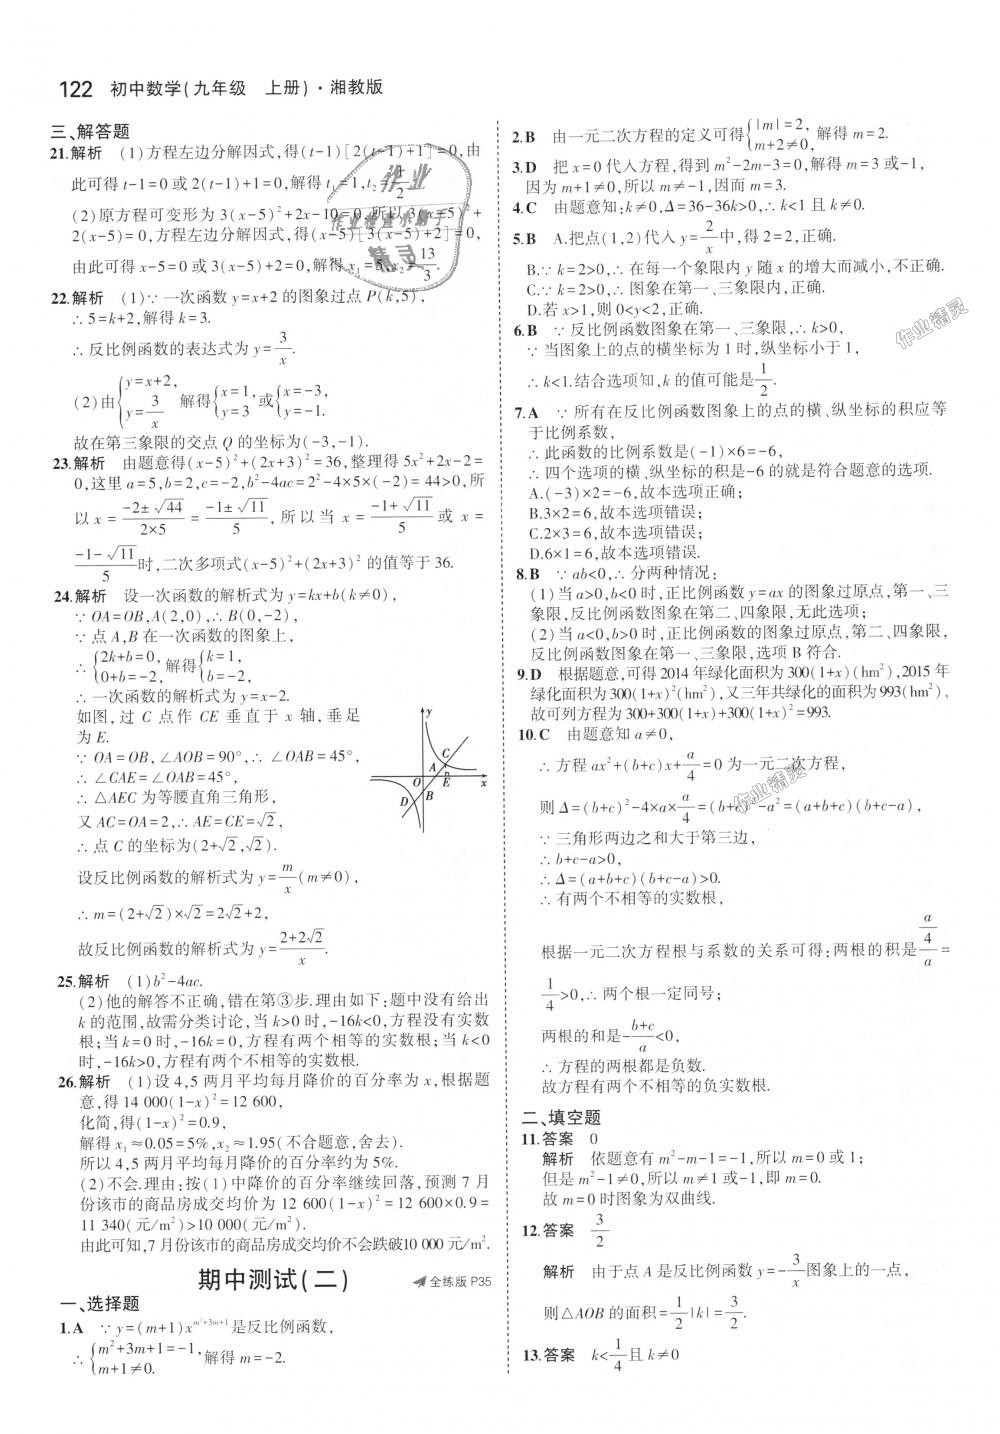 122 初中数学(九年级 上册)·湘教版
三、解答题
21.解析 (1)方程左边分解因式,得(t-1)[2(t-1)+1]=0,由
此可得t-1=0或2(t-1)+1=0,解得t₁=1,t₂=1/2.
(2)原方程可变形为3(x-5)²+2x-10=0,所以3(x-5)²+
2(x-5)=0,方程左边分解因式,得(x-5)[3(x-5)+2]=0,
由此可得x-5=0或3(x-5)+2=0,解得x₁=5,x₂=13/3.
22.解析 (1)∵一次函数y=x+2的图象过点P(k,5),
∴5=k+2,解得k=3.
∴反比例函数的表达式为y=3/x.
(2)由{y=x+2, y=3/x 解得{x=1, y=3或{x=-3, y=-1.
故在第三象限的交点Q的坐标为(-3,-1).
23.解析 由题意得(x-5)²+(2x+3)²=36,整理得5x²+2x-2=
0,这里a=5,b=2,c=-2,b²-4ac=2²-4×5×(-2)=44>0,所
以x=(-2±√44)/(2×5)=(-1±√11)/5,所以当x=(-1+√11)/5或x=
(-1-√11)/5时,二次多项式(x-5)²+(2x+3)²的值等于36.
24.解析 设一次函数的解析式为y=kx+b(k≠0),
∵OA=OB,A(2,0),∴B(0,-2),
∵点A,B在一次函数的图象上,
∴{2k+b=0, 0+b=-2,解得{k=1, b=-2,
∴一次函数的解析式为y=x-2.
如图,过C点作CE垂直于x轴,垂足
为E.
∵OA=OB,∠AOB=90°,∴∠OAB=45°,
∴∠CAE=∠OAB=45°,
∴△AEC为等腰直角三角形,
又AC=OA=2,∴AE=CE=√2,
∴点C的坐标为(2+√2,√2).
y
A C
O E x
D B
设反比例函数的解析式为y=m/x(m≠0),
∴m=(2+√2)×√2=2√2+2,
故反比例函数的解析式为y=(2+2√2)/x.
25.解析 (1)b²-4ac.
(2)他的解答不正确,错在第③步.理由如下:题中没有给出
k的范围,故需分类讨论,当k>0时,-16k<0,方程没有实数
根;当k=0时,-16k=0,方程有两个相等的实数根;当k<0
时,-16k>0,方程有两个不相等的实数根.
26.解析 (1)设4,5两月平均每月降价的百分率为x,根据题
意,得14 000(1-x)²=12 600,
化简,得(1-x)²=0.9,
解得x₁≈0.05=5%,x₂≈1.95(不合题意,舍去).
所以4,5两月平均每月降价的百分率约为5%.
(2)不会.理由:按(1)中降价的百分率继续回落,预测7月
份该市的商品房成交均价为12 600(1-x)²=12 600×0.9=
11 340(元/m²)>10 000(元/m²).
由此可知,7月份该市的商品房成交均价不会跌破10 000元/m².
期中测试(二) 全练版P35
一、选择题
1.A ∵y=(m+1)x^(m²+3m+1)是反比例函数,
∴{m²+3m+1=-1, m+1≠0. 解得m=-2.
2.B 由一元二次方程的定义可得{|m|=2, m+2≠0, 解得m=2.
3.D 把x=0代入方程,得到m²-2m-3=0,解得m=3或-1,
因为m+1≠0,所以m≠-1,因而m=3.
4.C 由题意知:k≠0,Δ=36-36k>0,∴k<1且k≠0.
5.B A.把点(1,2)代入y=2/x中,得2=2,正确.
B.∵k=2>0,∴在每一个象限内y随x的增大而减小,不正确.
C.∵k=2>0,∴图象在第一、三象限内,正确.
D.若x>1,则0<y<2,正确.
6.B ∵反比例函数图象在第一、三象限,∴k>0,
∵当图象上的点的横坐标为1时,纵坐标小于1,
∴k<1.结合选项知,k的值可能是1/2.
7.A ∵所有在反比例函数图象上的点的横、纵坐标的积应等
于比例系数,
∴此函数的比例系数是(-1)×6=-6,
∴四个选项的横、纵坐标的积是-6的就是符合题意的选项.
A.(-3)×2=-6,故本选项正确;
B.3×2=6,故本选项错误;
C.2×3=6,故本选项错误;
D.6×1=6,故本选项错误.
8.B ∵ab<0,∴分两种情况:
(1)当a>0,b<0时,正比例函数y=ax的图象过原点,第一、三
象限,反比例函数图象在第二、四象限,无此选项;
(2)当a<0,b>0时,正比例函数的图象过原点,第二、四象限,
反比例函数图象在第一、三象限,选项B符合.
9.D 根据题意,可得2014年绿化面积为300(1+x)(hm²),2015年
绿化面积为300(1+x)²(hm²),又三年共绿化的面积为993(hm²),
故可列方程为300+300(1+x)+300(1+x)²=993.
10.C 由题意知a≠0,
∴方程ax²+(b+c)x+a/4=0为一元二次方程,
则Δ=(b+c)²-4×a×a/4=(b+c)²-a²=(a+b+c)(b+c-a),
∵三角形两边之和大于第三边,
∴b+c-a>0,
∴Δ=(a+b+c)(b+c-a)>0.
∴有两个不相等的实数根,
根据一元二次方程根与系数的关系可得:两根的积是(a/4)/a=
1/4>0,∴两个根一定同号;
两根的和是-(b+c)/a<0,
∴方程的两根都是负数.
故方程有两个不相等的负实数根.
二、填空题
11.答案 0
解析 依题意有m²-m-1=-1,所以m=0或1;
但是m²-1≠0,所以m≠1或-1,即m=0.
故m=0时图象为双曲线.
12.答案 3/2
解析 由于点A是反比例函数y=-3/x图象上的一点,
则△AOB的面积=1/2|k|=3/2.
13.答案 k<1/4且k≠0
作业精灵
作业精灵